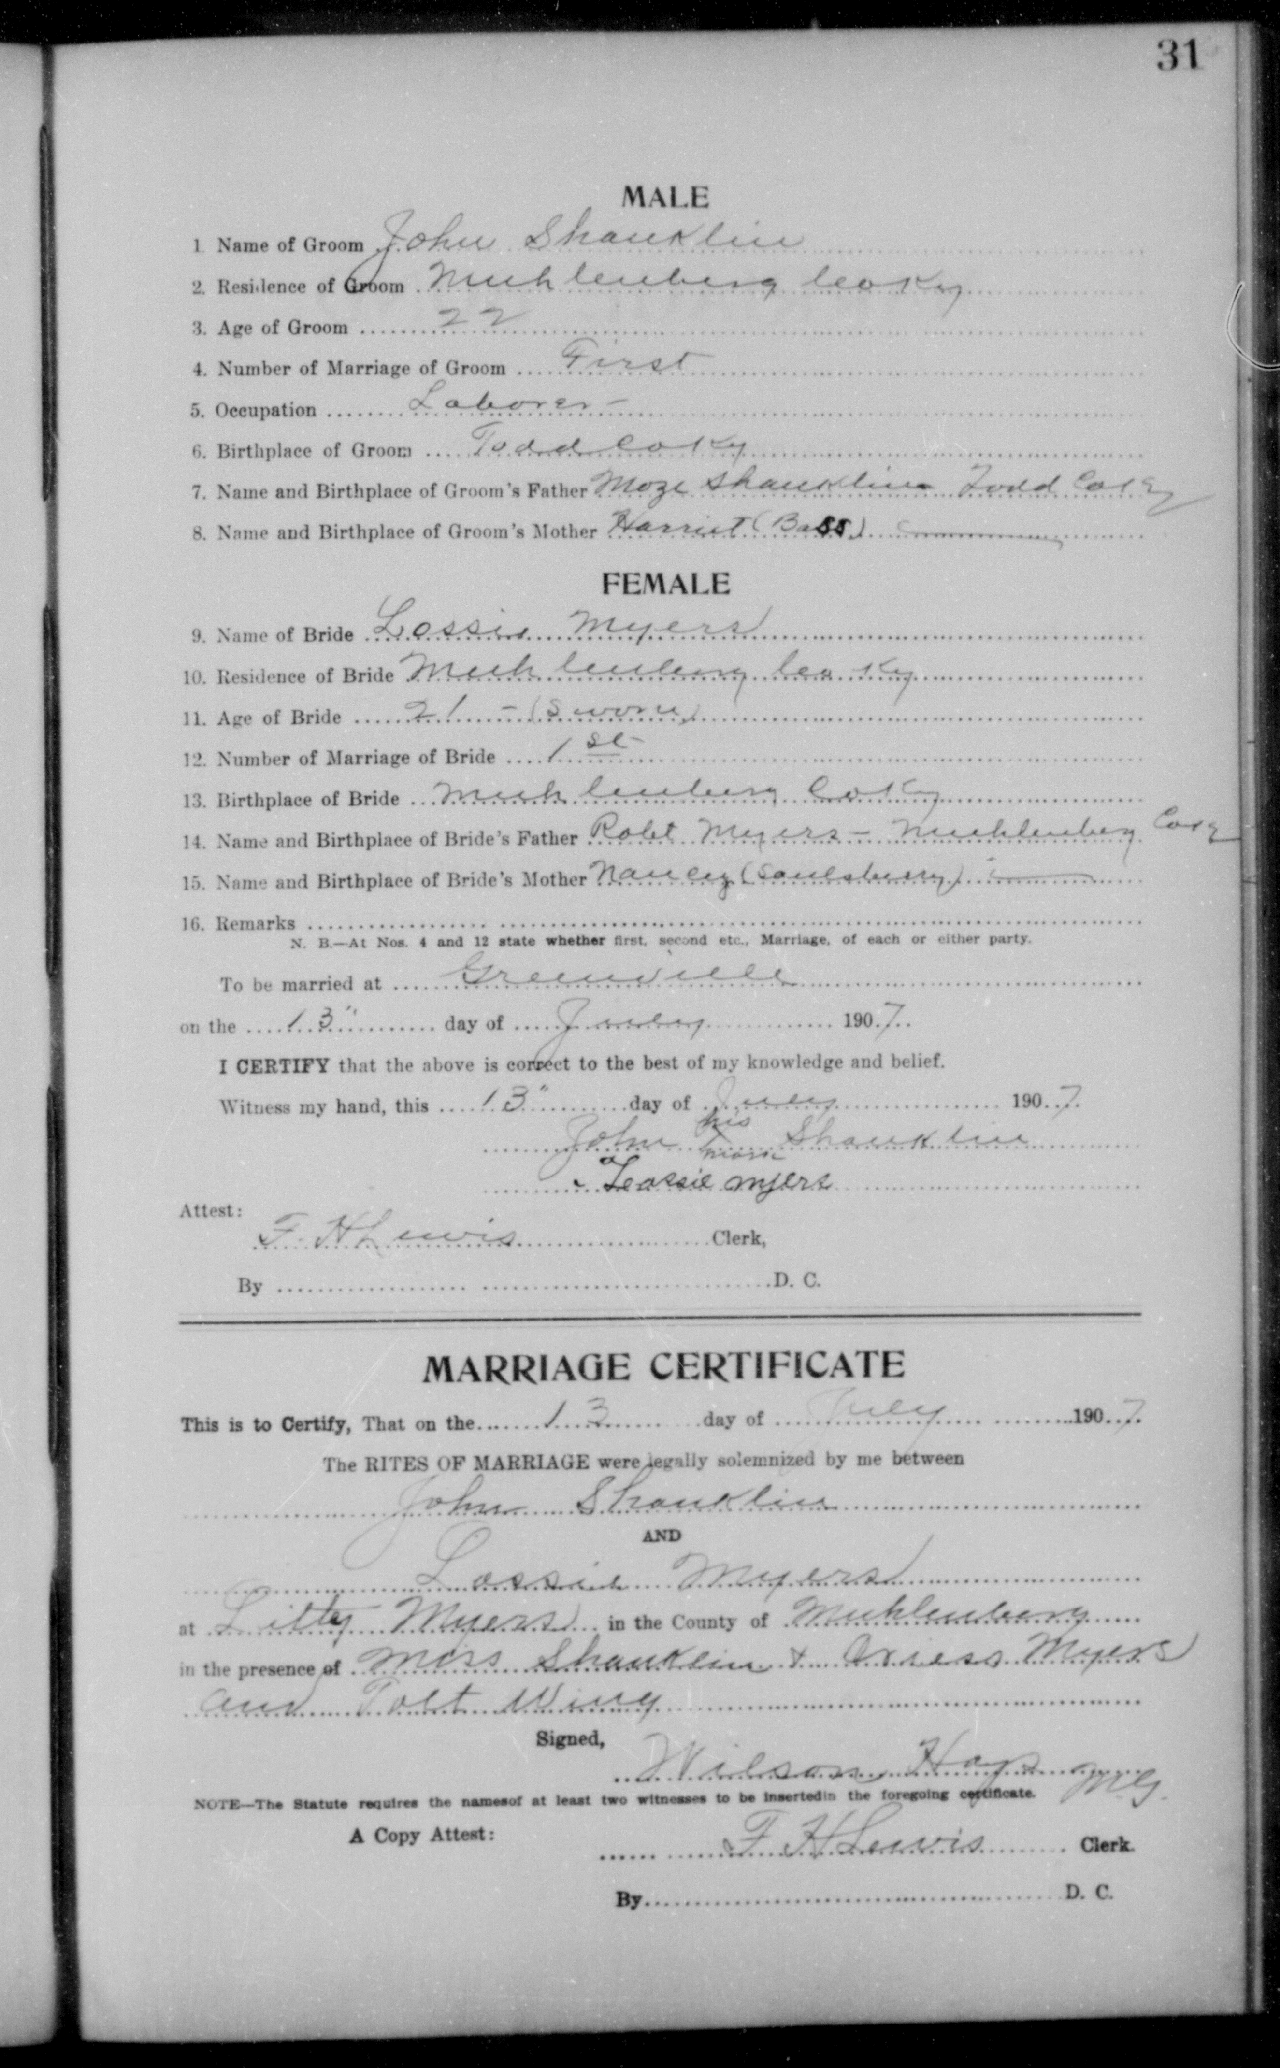 31
MALE
1 Name of Groom John Shanklin
2. Residence of Groom Muhlenberg Co Ky
3. Age of Groom 22
4. Number of Marriage of Groom First
5. Occupation Laborer -
6. Birthplace of Groom Todd Co Ky
7. Name and Birthplace of Groom's Father Moze Shanklin Todd Co Ky
8. Name and Birthplace of Groom's Mother Harriet (Bass)
FEMALE
9. Name of Bride Lossie Myers
10. Residence of Bride Muhlenberg Co Ky
11. Age of Bride 21 - (Sworn)
12. Number of Marriage of Bride 1st
13. Birthplace of Bride Muhlenberg Co Ky
14. Name and Birthplace of Bride's Father Robt Myers - Muhlenberg Co Ky
15. Name and Birthplace of Bride's Mother Nancy (Saulsberry)
16. Remarks
N. B.—At Nos. 4 and 12 state whether first, second etc., Marriage, of each or either party.
To be married at Greenville
on the 13" day of July 1907.
I CERTIFY that the above is correct to the best of my knowledge and belief.
Witness my hand, this 13" day of July 1907.
John his X mark Shanklin
Lossie myers
Attest:
F. H Lewis Clerk,
By D. C.
MARRIAGE CERTIFICATE
This is to Certify, That on the 13 day of July 1907.
The RITES OF MARRIAGE were legally solemnized by me between
John Shanklin
AND
Lossie Myers
at Litty Myers in the County of Muhlenberg
in the presence of Moss Shanklin & Myers
and Wing
Signed,
Wilson Hays M.G.
NOTE—The Statute requires the namesof at least two witnesses to be insertedin the foregoing certificate.
A Copy Attest:
F H Lewis Clerk.
By D. C.